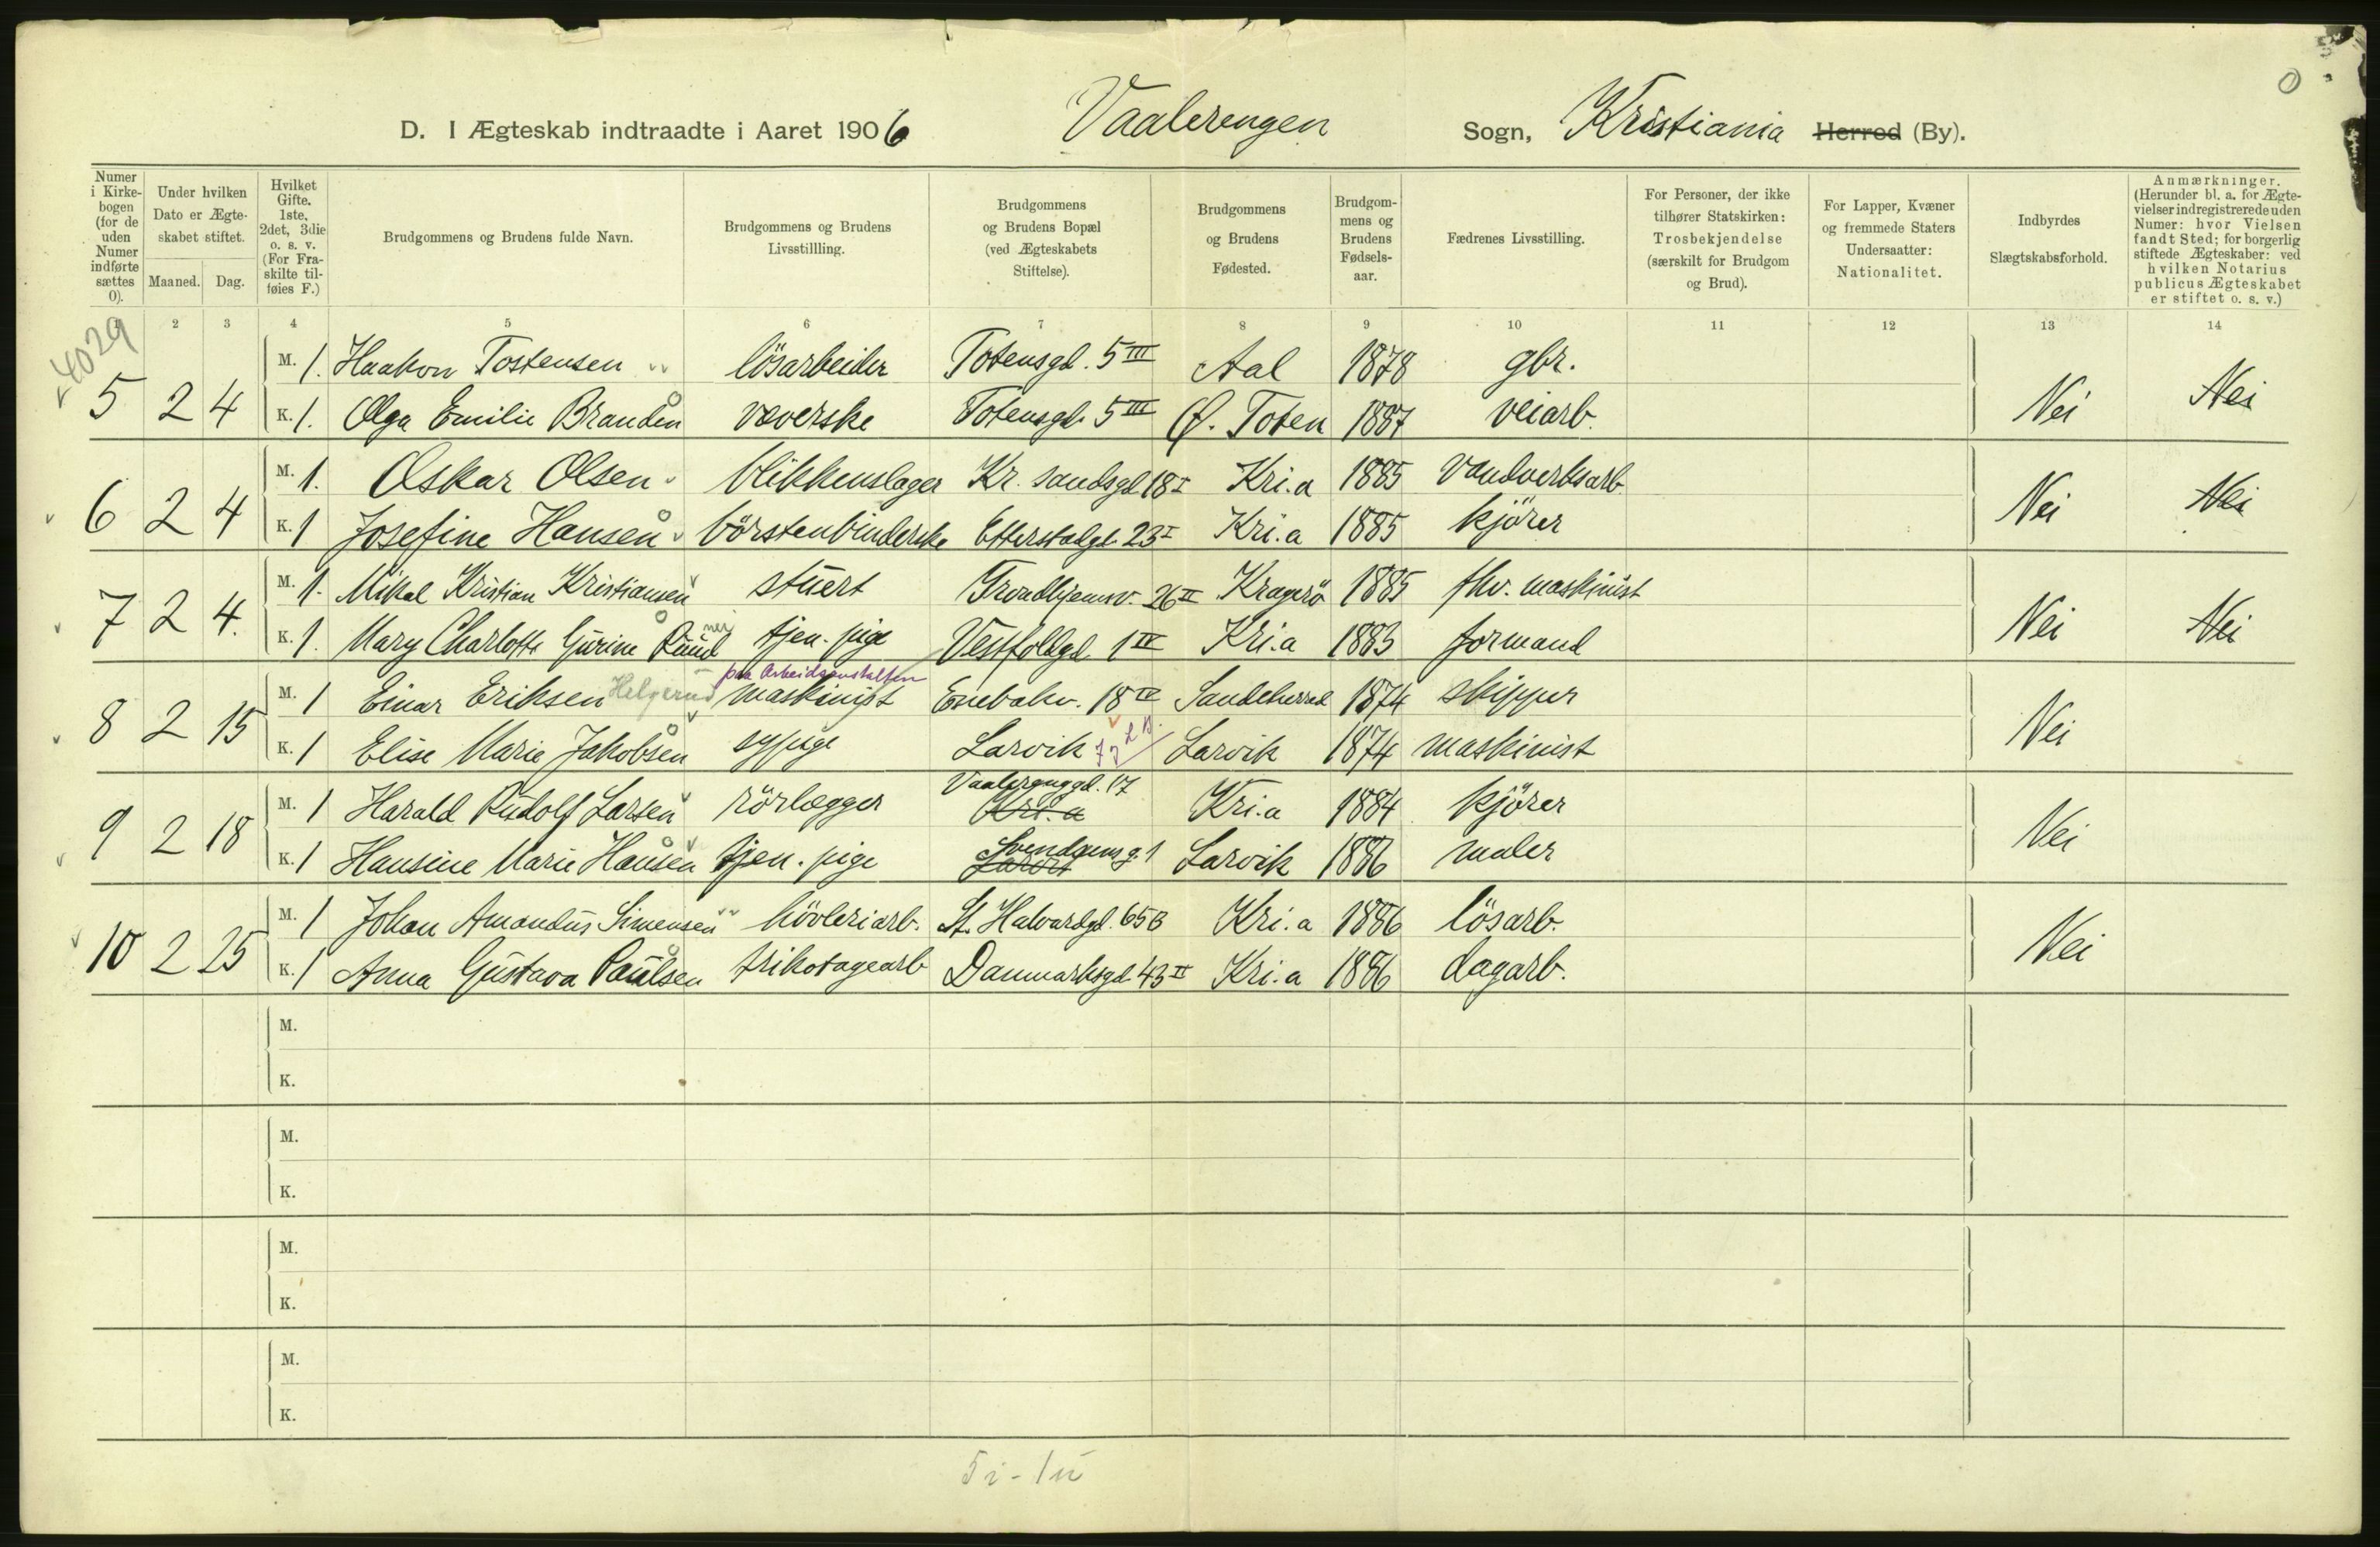 D. I Ægteskab indtraadte i Aaret 1906 Vaalerengen Sogn, Kristiania Herred (By).
0
Numer i Kirkebogen (for de uden Numer indførte sættes 0).
Under hvilken Dato er Ægteskabet stiftet.
Maaned. Dag.
Hvilket Gifte. 1ste, 2det, 3die o. s. v. (For Fraskilte tilføies F.)
Brudgommens og Brudens fulde Navn.
Brudgommens og Brudens Livsstillling.
Brudgommens og Brudens Bopæl (ved Ægteskabets Stiftelse).
Brudgommens og Brudens Fødested.
Brudgommens og Brudens Fødselsaar.
Fædrenes Livsstilling.
For Personer, der ikke tilhører Statskirken: Trosbekjendelse (særskilt for Brudgom og Brud).
For Lapper, Kvæner og fremmede Staters Undersaatter: Nationalitet.
Indbyrdes Slægtskabsforhold.
Anmærkninger. (Herunder bl. a. for Ægtevielser indregistrerede uden Numer: hvor Vielsen fandt Sted; for borgerlig stiftede Ægteskaber: ved hvilken Notarius publicus Ægteskabet er stiftet o. s. v.)
1 2 3 4 5 6 7 8 9 10 11 12 13 14
4029
M. 1. Haakon Tostensen lösarbeider Totensgd. 5 III Aal 1878 gbr.
5 2 4 Nei Nei
K. 1. Olga Emilie Branden væverske Totensgd. 5 III Ø. Toten 1887 veiarb.
M. 1. Oskar Olsen blikkenslager Kr. sandsgd 18 I Kri.a 1885 vandverksarb.
6 2 4 Nei Nei
K. 1 Josefine Hansen börstenbinderske Etterstadgd. 23 I Kri.a 1885 kjörer
M. 1. Mikal Kristian Kristiansen stuert Trondhjemsv. 26 II Kragerö 1885 fhv. maskinist
7 2 4. Nei Nei
K. 1. Mary Charlotte Gurine Ruud tjen. pige Vestfoldgd. 1 IV Kri.a 1883 formand
paa Arbeidsanstalten
M. 1 Einar Eriksen Helgerud maskinist Enebakv. 18 IV Sandeherred 1874 skipper
8 2 15 Nei
K. 1 Elise Marie Jakobsen sypige Larvik Larvik 1874 maskinist
Vaalerenggd. 17
M. 1 Harald Rudolf Larsen rörlægger Kri.a Kri.a 1884 kjörer
9 2 18 Nei
K. 1 Hansine Marie Hansen tjen. pige Larvik 1886 maler
M. 1 Johan Amandus Simensen hövleriarb. St. Halvardgd. 65B Kri.a 1886 lösarb.
10 2 25 Nei
K. 1 Anna Gustava Paulsen trikotagearb Danmarksgd. 43 II Kri.a 1886 dagarb.
M.
K.
M.
K.
M.
K.
M.
K.